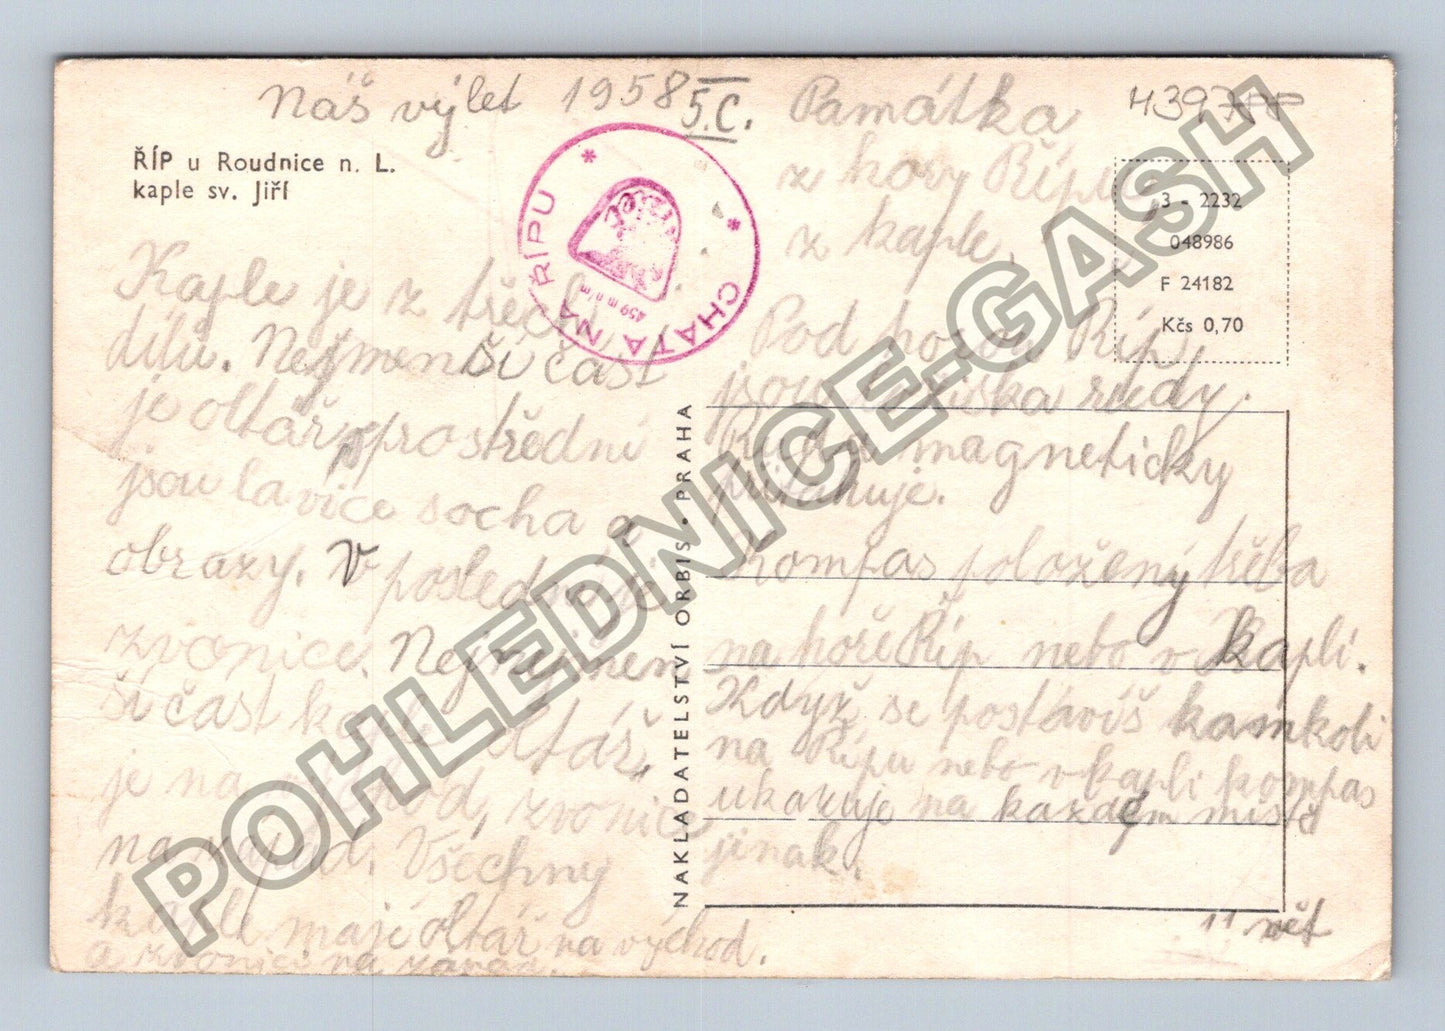 Náš výlet 1958 5.C.
Památka
z hory Řípu
z kaple.
H397PP
ŘÍP u Roudnice n. L.
kaple sv. Jiří
* CHATA NA ŘÍPU *
459 m n/m
3 - 2232
048986
F 24182
Kčs 0,70
Kaple je z třech
dílů. Nejmenší část
je oltář prostřední
jsou lavice socha a
obrazy. V poslední je
zvonice. Nejmenen
ší část oltář
je na východ, zvonic
na západ. Všechny
kaple mají oltář na východ.
a zvonici na západ.
NAKLADATELSTVÍ ORBIS • PRAHA
Pod horou Říp
jsou ložiska rudy.
Ruda magneticky
přitahuje.
Kompas položený třeba
na hoře Říp nebo v kapli.
Když se postavíš kamkoli
na Řípu nebo v kapli kompas
ukazuje na každém místě
jinak.
11 vět
POHLEDNICE-GASH